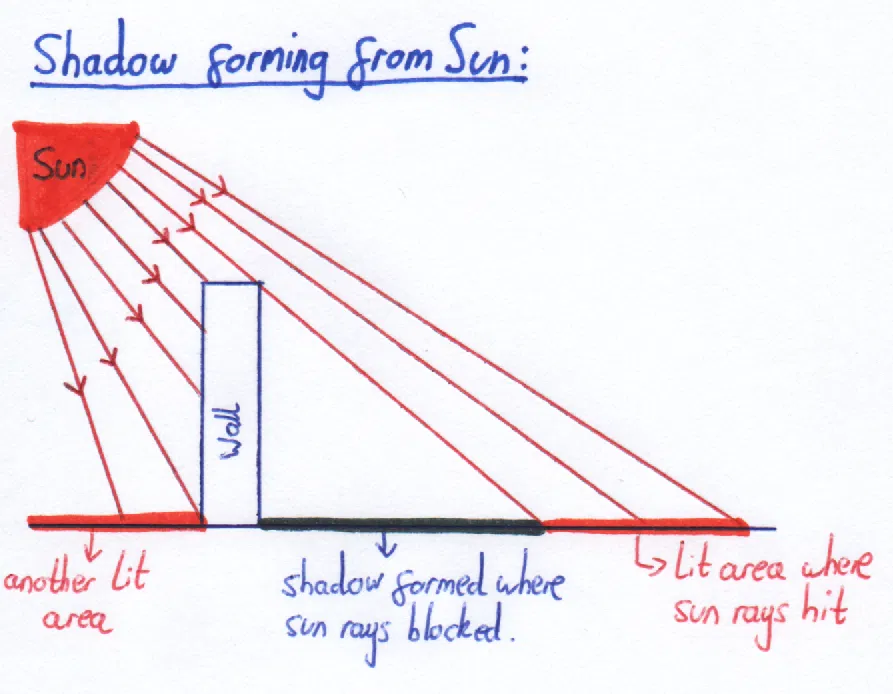 Shadow forming from Sun:
Sun
Wall
another lit
area
shadow formed where
sun rays blocked.
Lit area where
sun rays hit